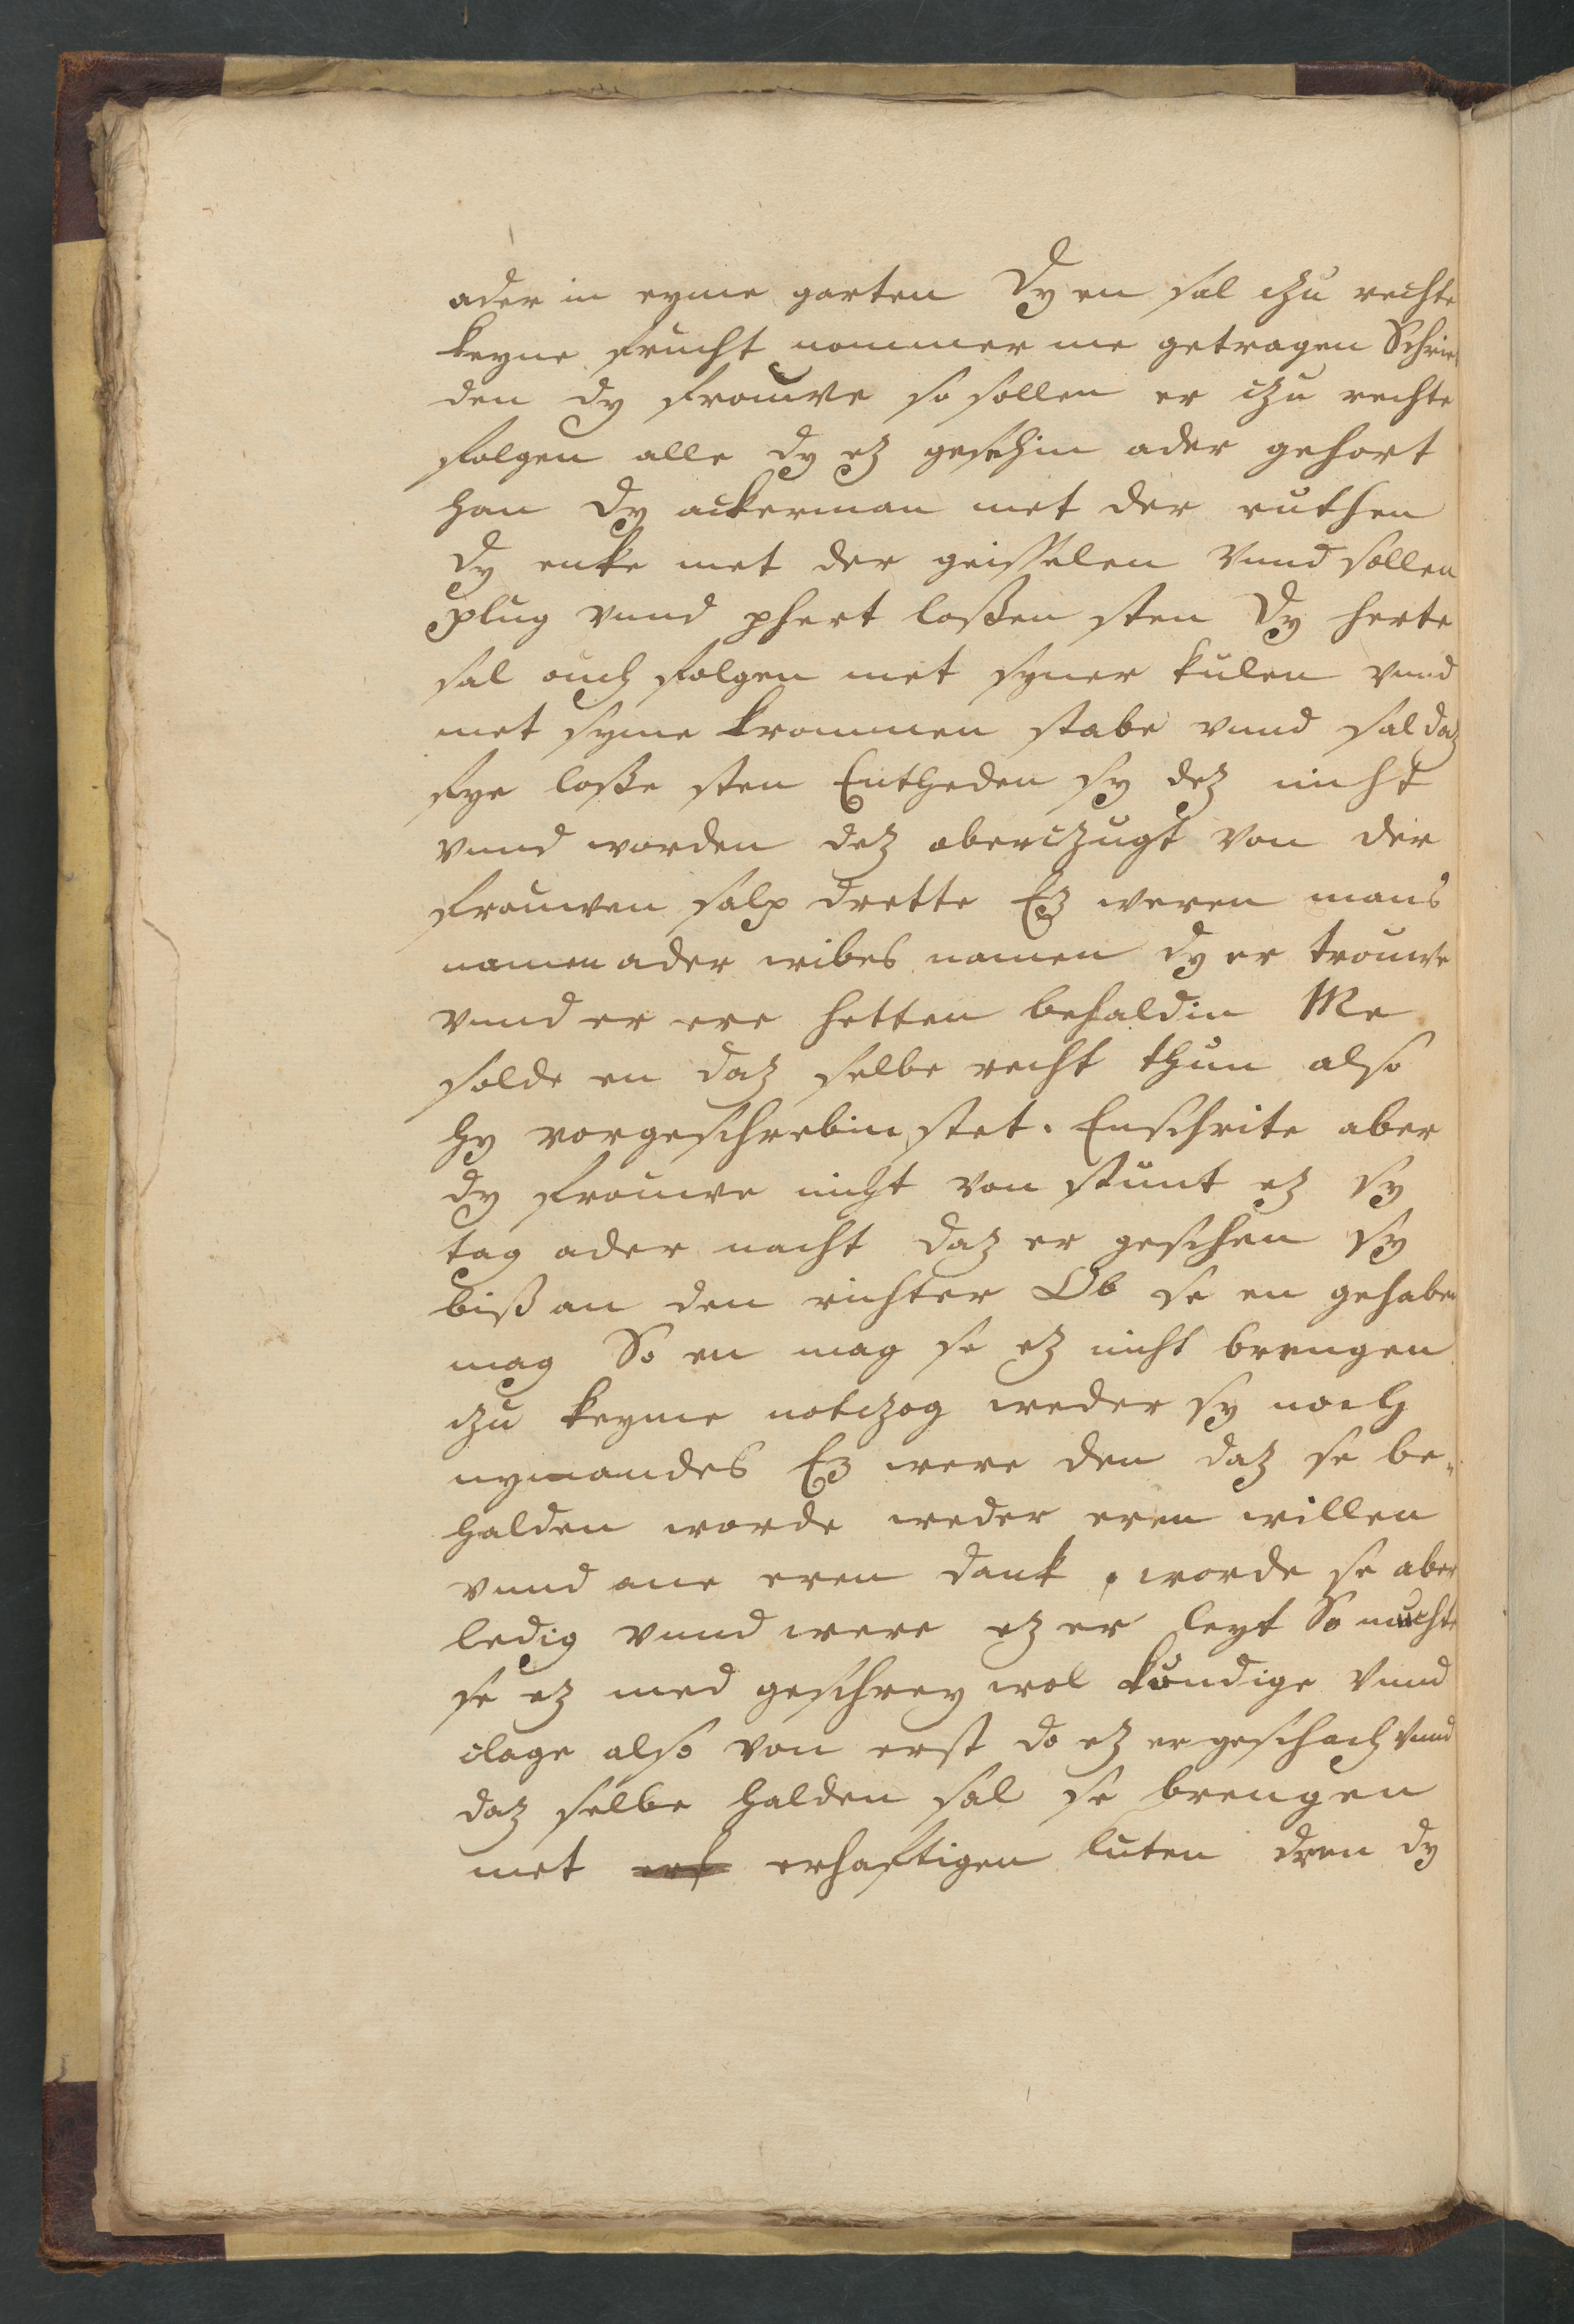 ader in eyme garten Dy en sal czu rechte
keyne frucht nommer me getragen Schrie
den dy frouwe so sollen er czu rechte
folgen alle dy ez gesehin ader gehort
han Dy ackerman met der ruthen
dy enke met der geisselen vnnd sollen
plug vnnd phert loßen sten Dy herte
sal ouch folgen met syner kulen vnnd
met syme krommen stabe vnnd sal daz
fye loße sten Entheden sy dez nicht
vnnd worden dez oberczugt von der
frouwen salp drette Ez weren mans
namen ader wibes namen dy er trouwe
vnnd er ere hetten behaldin Me
solde en daz selbe recht thun also
hy vorgeschrebin stet. Enschrite aber
dy frouwe nicht von stunt ez sy
tag ader nacht daz er geschen sy
biß an den richter Ob se en gehaben
mag So en mag se ez nicht brengen
czu keyme notczog weder sy noch
nymandes Ez were den daz se be-
halden worde weder eren willen
vnnd ane eren dank, worde se aber
ledig vnnd were ez er leyt So muchte
se ez med geschrey wol kundige vnnd
clage also von erst do ez er geschach vnnd
daz selbe halden sal se brengen
met erhaftigen luten dren dy